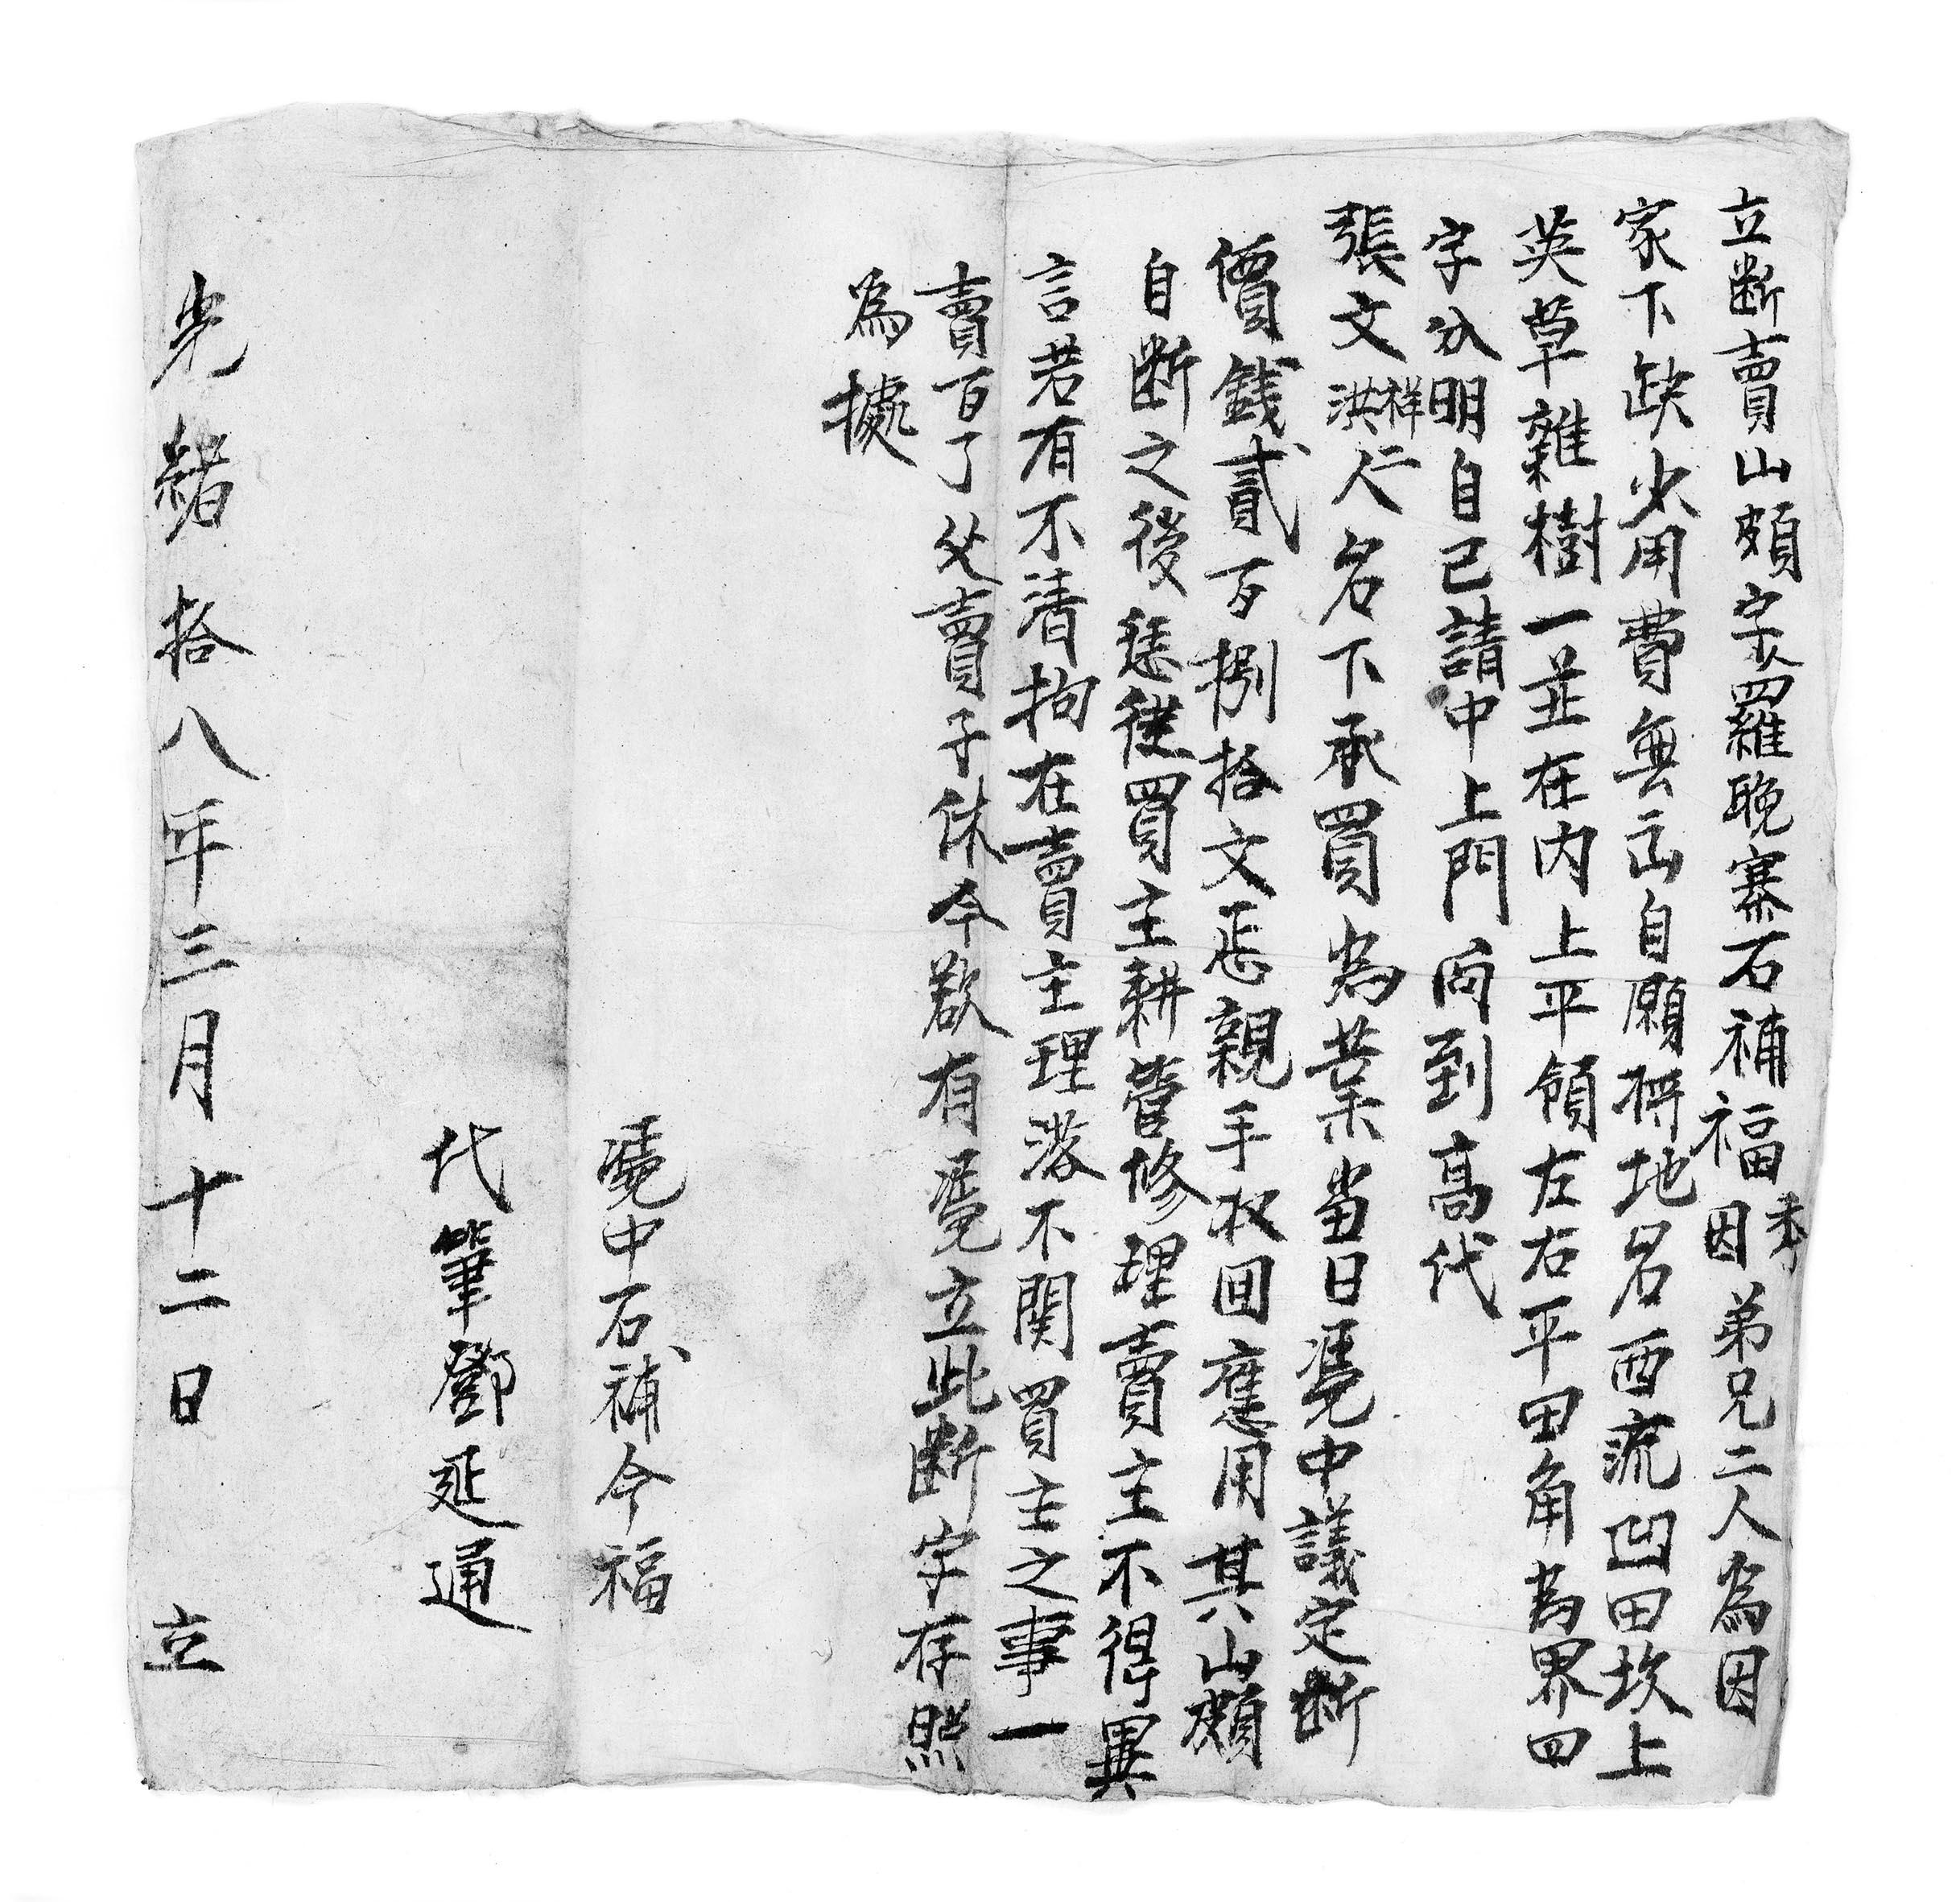 立断賣山頗字人羅晚寨石補福秀因弟兄二人為因
家下缺火用費無 自願將地名西流凹田坎上
英草雜樹一並在内上平領左右平田角為界四
字分明自己請中上門向到高代
張文洪祥二人名下承買為業當日凴中議定断
價錢貳百捌拾文悉親手收回應用其山頗
自断之後恁從買主耕管修理賣主不得異
言若有不清拘在賣主理落不関買主之事一
賣百了父賣子休今欲有凴立此断字存照
為據
凴中石補今福
代筆鄧延通
光緒拾八年三月十二日 立